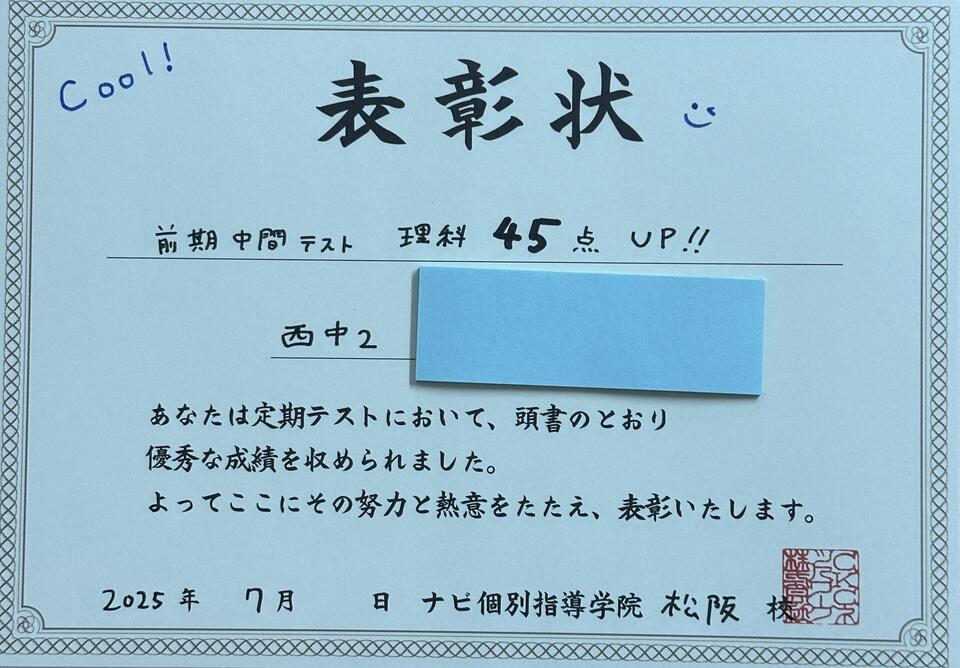 Cool!
表彰状
前期中間テスト 理科 45点 UP!!
西中2
あなたは定期テストにおいて、頭書のとおり
優秀な成績を収められました。
よってここにその努力と熱意をたたえ、表彰いたします。
2025年 7月 日 ナビ個別指導学院 松阪 校